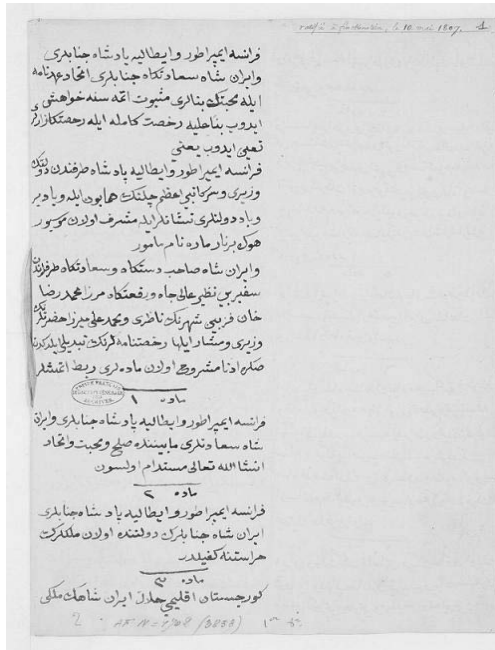 ratifié à finkenstein, le 10 mai 1807.
فرانسه ایمپراطور و ایطالیه پادشاه جنابلری
و ایران شاه سعادتکاه جنابلری اتحاد عهدنامه
ایله محبتك بنالری مثبوت اتمه سنه خواهشی
ایدوب بناحلیه رخصت کامله ایله رخصتکارلر
تعیی ایدوب یعنی
فرانسه ایمپراطور و ایطالیه پادشاه طرفندن دولتك
وزیری و سرکاتبی اعظم
و باد دولتلری نشانلرایله مشرف اولان موسیور
هوک برنار ماره نام مامور
و ایران شاه صاحب دستکاه و سعادتکاه طرفلرندن
سفیر بی نظیر عالی جاه و رفعتکاه مرزا محمد رضا
خان قزبینی شهرنك ناظری و محمد علی میرزا حضرتلرنك
وزیری و مشار ایلها رخصتنامه لرنك تبدیلی
صکره ادنا مشروح اولان ماده لری ربط اتمشلر
ماده ١
فرانسه ایمپراطور و ایطالیه پادشاه جنابلری و ایران
شاه سعادتلری مابیننده صلح و محبت و اتحاد
انشا الله تعالی مستدام اولسون
ماده ٢
فرانسه ایمپراطور و ایطالیه پادشاه جنابلری
ایران شاه جنابلرك دولتنده اولان ملکلرك
حراستنه کفیلدر
ماده ٣
کورجستان اقلیمی حلال ایران شاهك ملکی